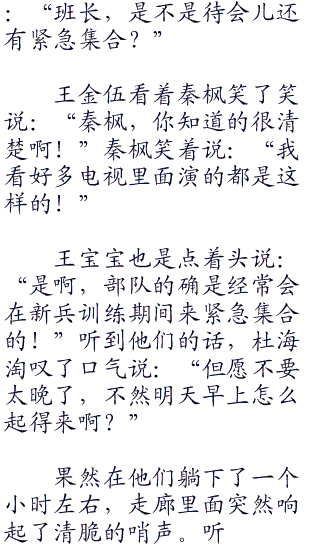 ：“班长，是不是待会儿还
有紧急集合？”
王金伍看着秦枫笑了笑
说：“秦枫，你知道的很清
楚啊！”秦枫笑着说：“我
看好多电视里面演的都是这
样的！”
王宝宝也是点着头说：
“是啊，部队的确是经常会
在新兵训练期间来紧急集合
的！”听到他们的话，杜海
淘叹了口气说：“但愿不要
太晚了，不然明天早上怎么
起得来啊？”
果然在他们躺下了一个
小时左右，走廊里面突然响
起了清脆的哨声。听